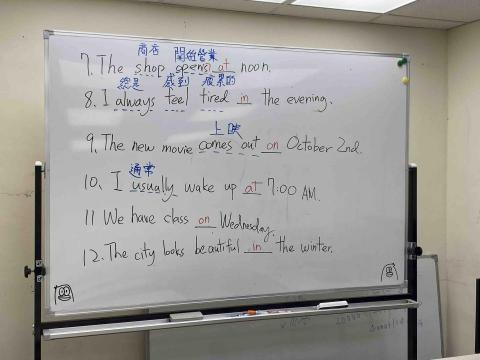 商店 開始營業
7. The shop opens at noon.
總是 感到 疲累的
8. I always feel tired in the evening.
上映
9. The new movie comes out on October 2nd.
通常
10. I usually wake up at 7:00 AM.
11 We have class on Wednesday.
12. The city looks beautiful in the winter.